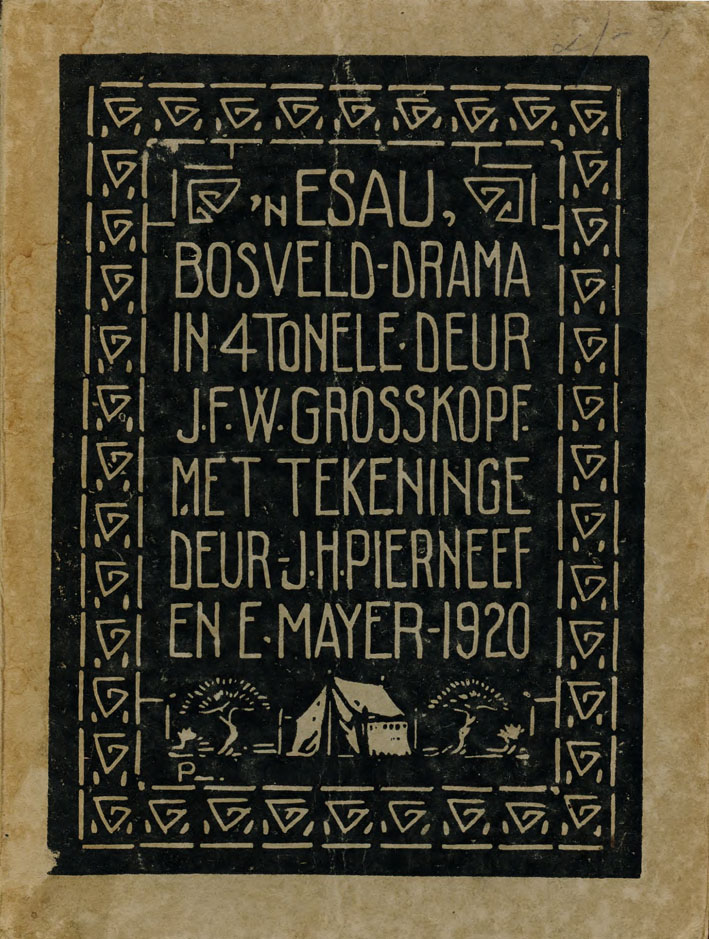 'N ESAU,
BOSVELD-DRAMA
IN·4TONELE·DEUR
J.F.W.GROSSKOPF.
MET TEKENINGE
DEUR-J.H.PIERNEEF
EN E.MAYER-1920
P